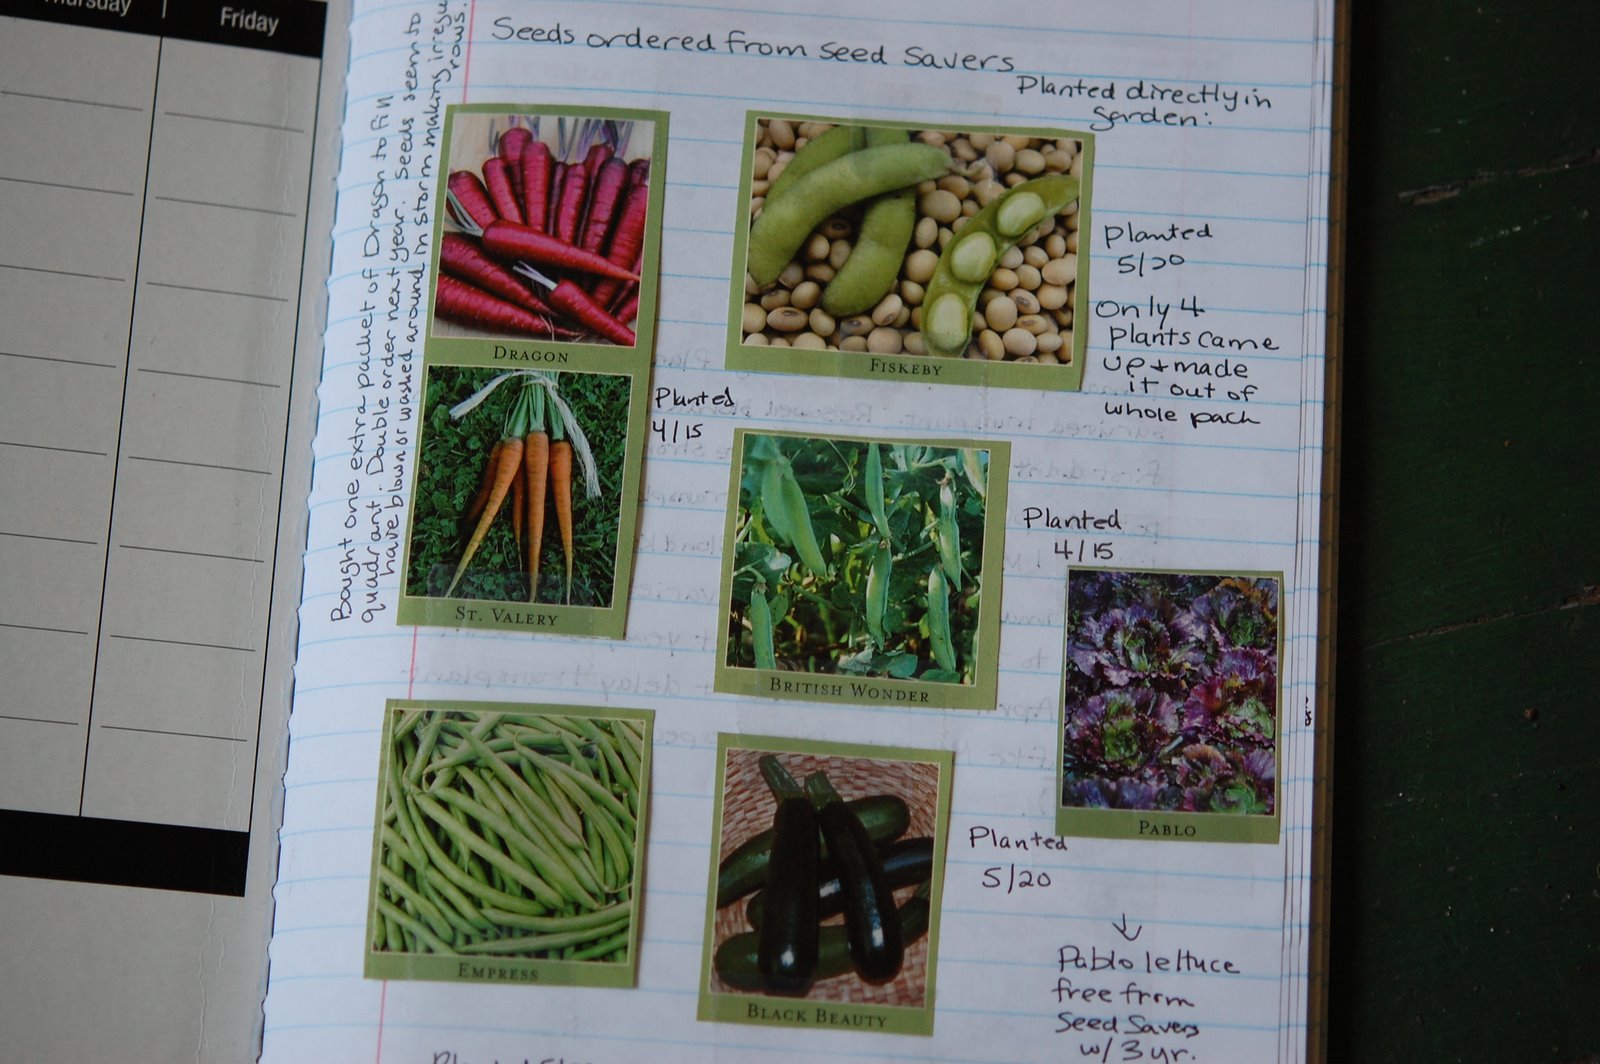 Thursday
Friday
Seeds ordered from Seed Savers
Planted directly in
garden:
Bought one extra packet of Dragon to fill
quadrant. Double order next year. Seeds seem to
have blown or washed around in storm making
rows.
DRAGON
FISKEBY
Planted
5/20
Only 4
plants came
up + made
it out of
whole pack
Planted
4/15
ST. VALERY
BRITISH WONDER
Planted
4/15
PABLO
EMPRESS
BLACK BEAUTY
Planted
5/20
↓
Pablo lettuce
free from
Seed Savers
w/ 3 yr.